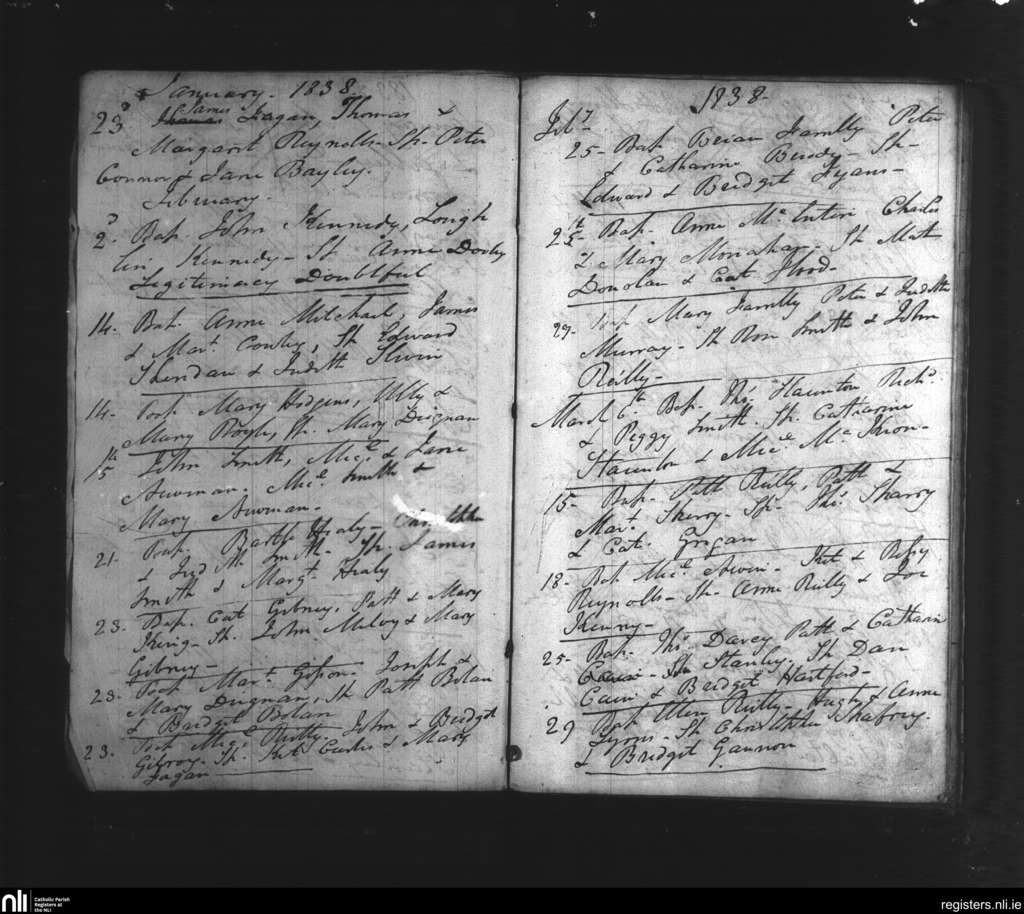 January - 1838.
23 James Fagan, Thomas &
Margaret Reynolds - Sp. Peter
Connor & Jane Bayley.
February.
2d. Bap. John Kennedy, Lough
lin Kennedy - Sp. Anne Dowly
Legitimacy Doubtful
14. Bap. Anne Mitchael, James
& Mart. Cowley, Sp. Edward
Sheridan & Judith
14. Bap. Mary Hodgens, &
Mary Boyle, Sp. Mary Deignan
15 John Smith, Micl. & Jane
Newman. Micl. Smith &
Mary Newman.
21. Bap. Barth. Healy -
& Judith Smith. Sp. James
Smith & Margt. Healy
23. Bap. Cat Gibney, Patt & Mary
Sp. John & Mary
Gibney -
23. Bap. Mart. Gipson. Joseph &
Mary Duignan, Sp. Patt Bolan
& Bridget Bolan
23. Bap. Micl. Reilly. John & Bridget
Gilroy. Sp. & Mary
Fagan
1838.
Feby.
25 - Bap. Brian Farrelly Peter
& Catharine - Sp.
Edward & Bridget Lyans -
25th Bap. Anne McEnteri Charles
& Mary Monahan - Sp. Mat
Donolan & Cat. Flood.
29. Bap. Mary Farrelly Peter & Judith
Murray - Sp. Ross Smith & John
Reilly -
March 6th. Bap. Ths. Staunton Richd.
& Peggy Smith. Sp. Catharine
Staunton & Micl. Mc Keon -
15 - Bap. Patt Reilly, Patt &
Mart. Sherry - Sp. Ths. Sharry
& Cat. Grigan
18 - Bap. Micl. - & Betsy
Reynolds - Sp. Anne Reilly &
Kenny -
25 - Bap. Ths. Davey Patt & Catharin
Stanley. Sp. Dan
& Bridget Hartford -
29 Bap. Ellen Reilly - Hugh & Anne
Lyons - Sp.
& Bridget Gannon
nli Catholic Parish
Registers at
the NLI
registers.nli.ie